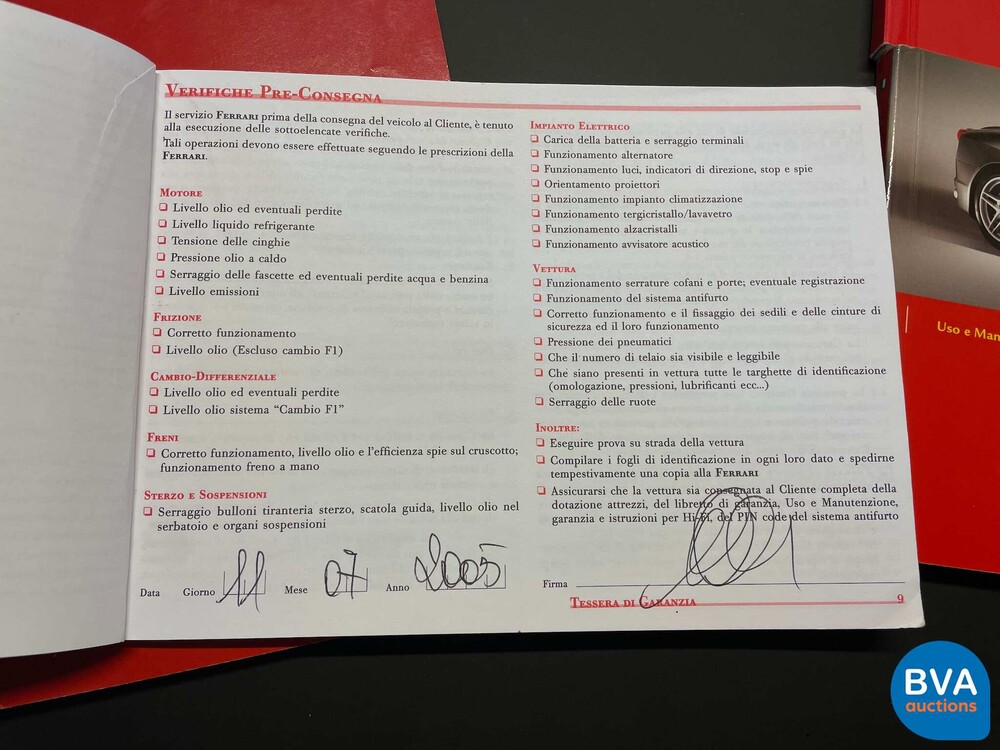 VERIFICHE PRE-CONSEGNA
Il servizio FERRARI prima della consegna del veicolo al Cliente, è tenuto
alla esecuzione delle sottoelencate verifiche.
Tali operazioni devono essere effettuate seguendo le prescrizioni della
FERRARI.
MOTORE
Livello olio ed eventuali perdite
Livello liquido refrigerante
Tensione delle cinghie
Pressione olio a caldo
Serraggio delle fascette ed eventuali perdite acqua e benzina
Livello emissioni
FRIZIONE
Corretto funzionamento
Livello olio (Escluso cambio F1)
CAMBIO-DIFFERENZIALE
Livello olio ed eventuali perdite
Livello olio sistema “Cambio F1”
FRENI
Corretto funzionamento, livello olio e l'efficienza spie sul cruscotto;
funzionamento freno a mano
STERZO E SOSPENSIONI
Serraggio bulloni tiranteria sterzo, scatola guida, livello olio nel
serbatoio e organi sospensioni
Data Giorno 11 Mese 07 Anno 2005
IMPIANTO ELETTRICO
Carica della batteria e serraggio terminali
Funzionamento alternatore
Funzionamento luci, indicatori di direzione, stop e spie
Orientamento proiettori
Funzionamento impianto climatizzazione
Funzionamento tergicristallo/lavavetro
Funzionamento alzacristalli
Funzionamento avvisatore acustico
VETTURA
Funzionamento serrature cofani e porte; eventuale registrazione
Funzionamento del sistema antifurto
Corretto funzionamento e il fissaggio dei sedili e delle cinture di
sicurezza ed il loro funzionamento
Pressione dei pneumatici
Che il numero di telaio sia visibile e leggibile
Che siano presenti in vettura tutte le targhette di identificazione
(omologazione, pressioni, lubrificanti ecc...)
Serraggio delle ruote
INOLTRE:
Eseguire prova su strada della vettura
Compilare i fogli di identificazione in ogni loro dato e spedirne
tempestivamente una copia alla FERRARI
Assicurarsi che la vettura sia consegnata al Cliente completa della
dotazione attrezzi, del libretto di garanzia, Uso e Manutenzione,
garanzia e istruzioni per Hi-Fi, del PIN code del sistema antifurto
Firma
TESSERA DI GARANZIA 9
Uso e Man
BVA
auctions